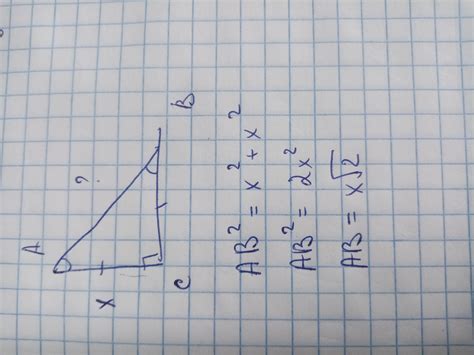 A
?
B
x
C
AB² = x² + x²
AB² = 2x²
AB = x√2